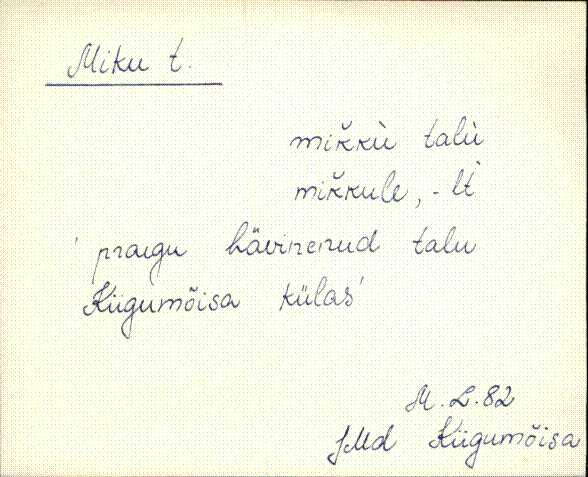 Miku t.
mik̆kù talù
mik̆kule, -lt
'praegu hävinenud talu
Kiigumõisa külas'
M. L. 82
JMd Kiigumõisa